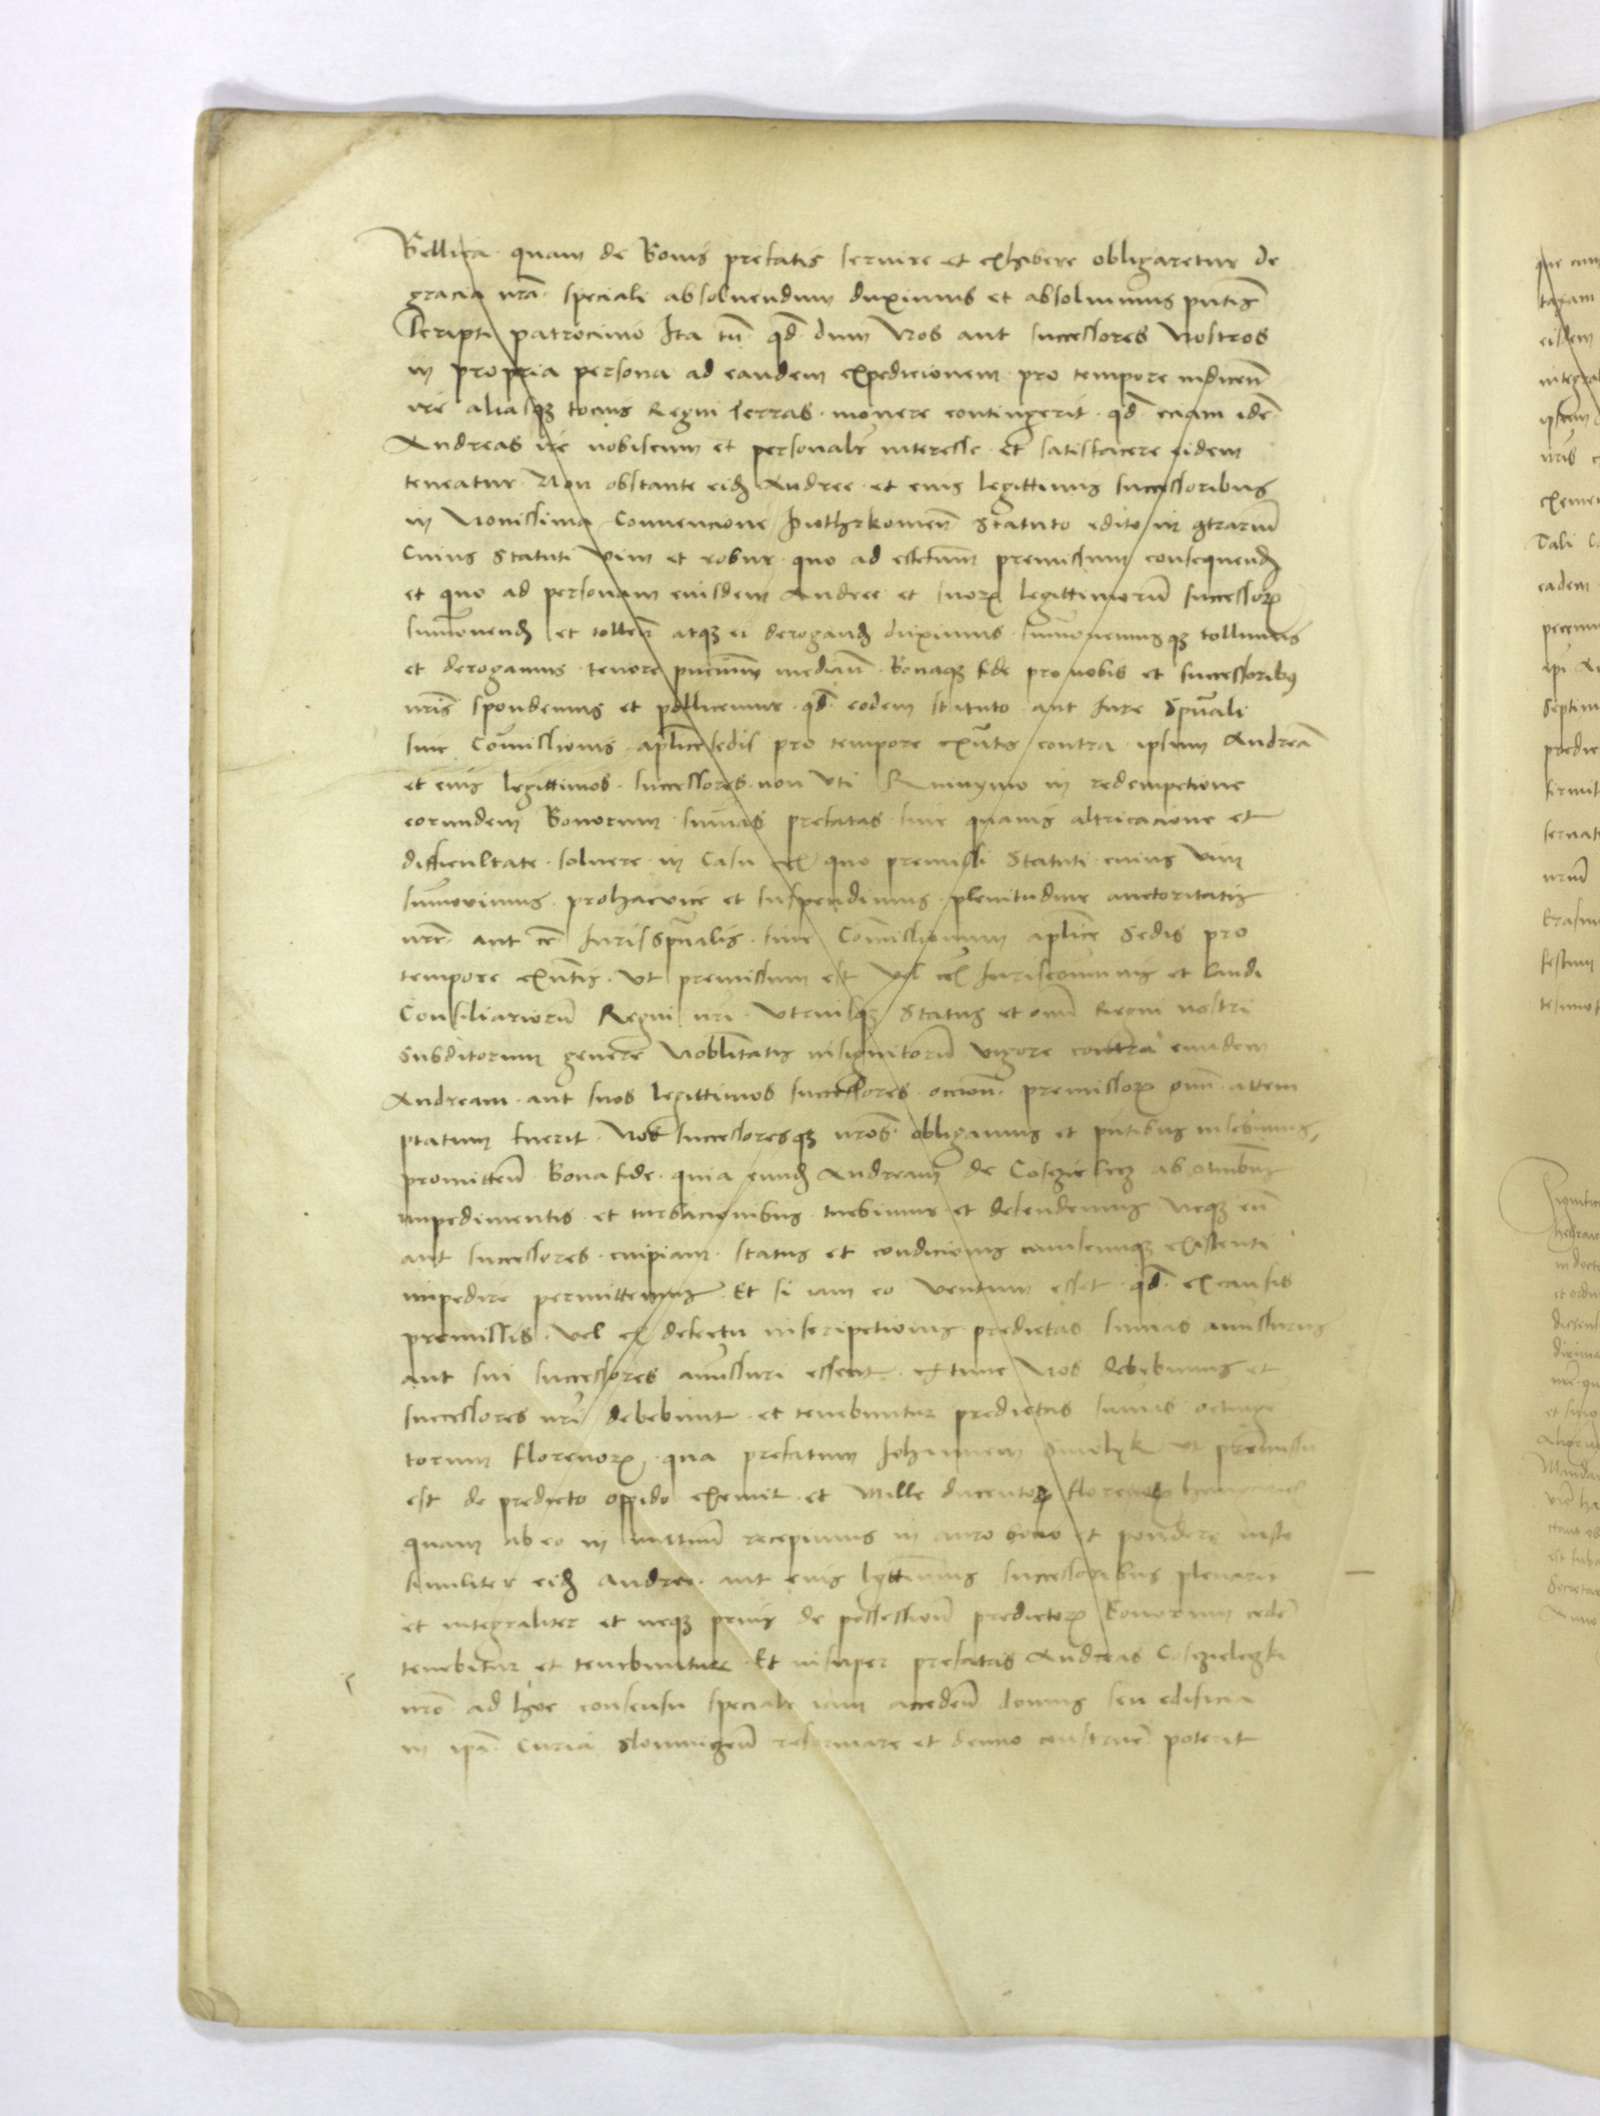 Bellica quam de Bonis prefatis servire et exhibere obligaretur de
gracia nrā speciali absolvendum duximus et absolvimus pntis
scripti patrocinio Ita tn̄ qd dum Nos aut successores Nostros
in propria persona ad eandem expedicionem pro tempore indicen̄
vie aliasqȝ tocius Regni Terras movere contingerit qd eciam idē
Andreas ire nobiscum et personalr̄ interesse et satisfacere eidem
teneatur Non obstante eidȝ Andree et eius legittimis successoribus
in Novissima Convencione Piothrkowien̄ Statuto edito in 9trariū
Cuius Statuti vim et robur quo ad effectum premissum consequendȝ
et quo ad personam eiusdem Andree et suorꝝ legittimorū successorꝝ
sumovendȝ et tollen̄ atqȝ ei derogandȝ duximus sumovemusqȝ tollimus
et derogamus tenore pncium median̄ Bonaqȝ fide pro nobis et successoribus
nris spondemus et pollicemur qd eodem statuto aut Jure Spūali
sive Comissionis aplice sedis pro tempore exn̄tis contra ipsum Andreā
et eius legittimos successores non uti in redempctione
eorundem Bonorum sumas prefatas sine quavis altricacione et
difficultate solvere in Casu ex quo premissi Statuti cuius vim
sumovimus prohacvice et suspendimus plenitudine auctoritatis
nre aut Jurisspūalis sive Comissionum aplice Sedis pro
tempore exn̄tis ut premissum est vel Juriscomunis et laudi
Consiliariorū Regni nri Utriusqȝ Status et omn̄ Regni nostri
Subditorum genere Nobilitatis insignitorū vigore contra eundem
Andream aut suos legittimos successores occione premissorꝝ omn̄ attem
ptatum fuerit Nos successoresqȝ nros obligamus et pntibus inscribimus
promitten̄ Bona fide quia eundȝ Andream de ab omibus
impedimentis et turbacionibus tuebimur et defendemus Neqȝ eū
aut successores cuipiam status et condicionis cuiuscumqȝ existenti
impedire permittemus Et si iam eo ventum esset qd ex causis
premissis vel ex defectu inscripctionis predictas sumas amissurus
aut sui successores amissuri essent extunc Nos debebimus et
successores nri debebunt et tenebuntur predictas sumas octinge
torum florenorꝝ qua prefatum Johannem Smolyk ut premissū
est de predicto oppido exemit et Mille ducentorꝝ florenorꝝ
quam ab eo in mutuū recepimus in auro bono et pondere iusto
similiter eidȝ Andree aut eius legittimis successoribus plenarie
et integraliter et neqȝ prius de possessionē predictorꝝ Bonorum cedē
tenebitur et tenebuntur Et insuper prefatus Andreas
nro ad hoc consensu speciale iam acceden̄ domus seu edificia
in ipā Curia reformare et denuo construē poterit